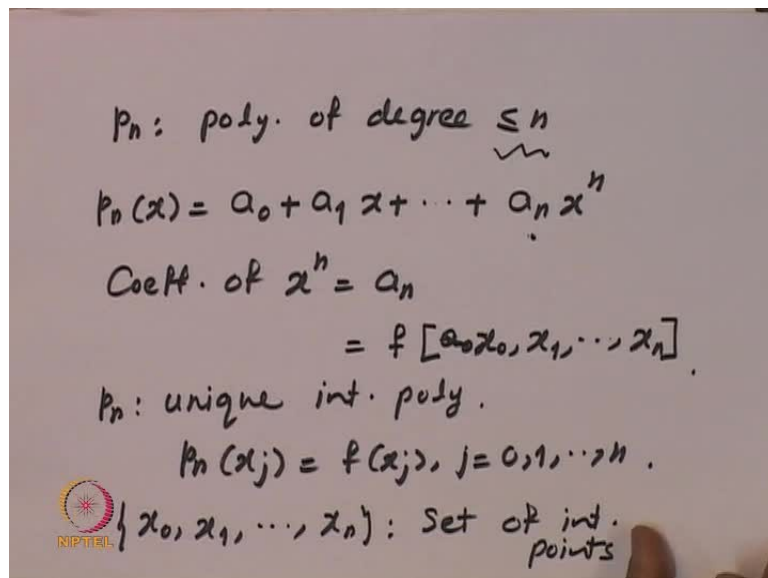 Pn: poly. of degree ≤ n
Pn(x) = a0 + a1 x + ··· + an x^n
Coeff. of x^n = an
= f [a0x0, x1, ··, xn].
Pn: unique int. poly.
Pn(xj) = f(xj), j = 0,1,··,n.
{x0, x1, ···, xn}: Set of int.
points
NPTEL